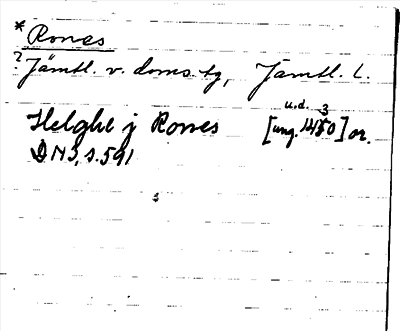 * Rones
? Jämtl. v. doms. tg, Jämtl. l.
u.d. 3
Helghe j Rones [ung. 1450] or.
DN 3, s. 591